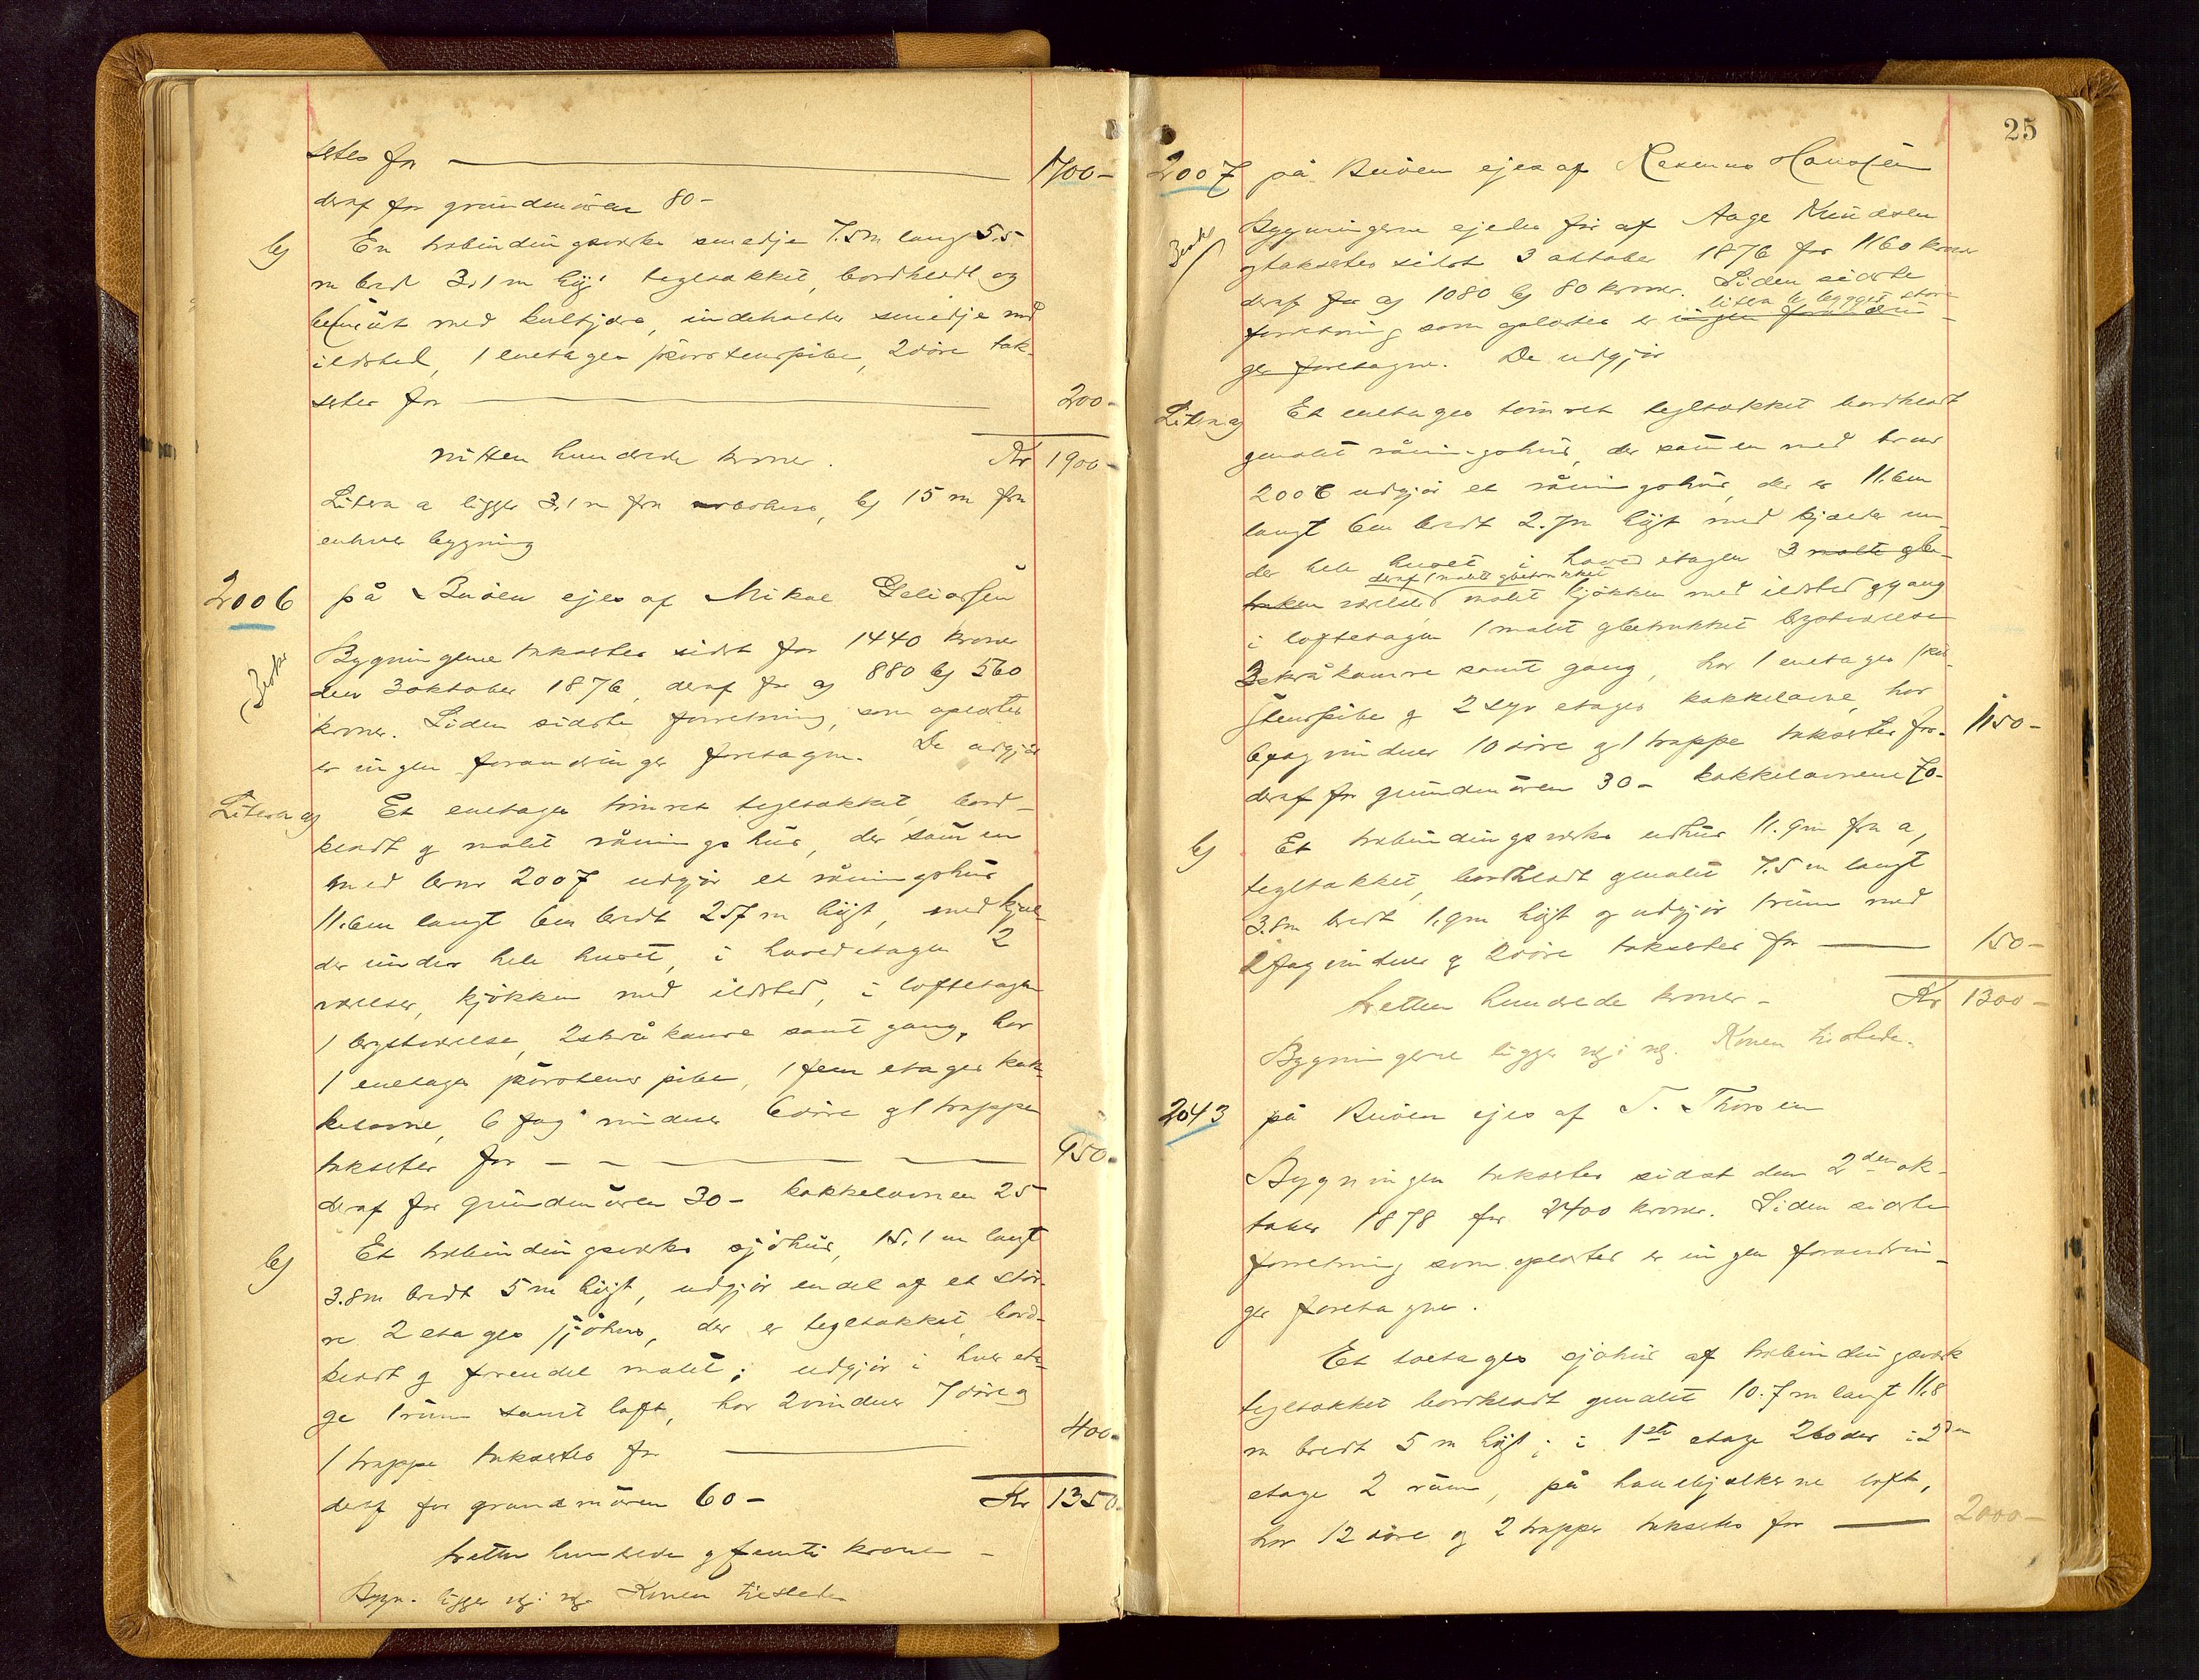 sertes for 1700-
deraf for grundmuren 80-
b) En træbindingsværks smedje 7.5m lang 5.5
m bred 3.1 m höj tegltækket, bordklædt og
med kultjære, indeholder smedje med
ildsted, 1 enetages skorstenspibe, 2 döre tak-
serter for 200-
nitten hundrede kroner. Kr 1900-
Litera a ligger 3,1 m fra b) 15 m fra
enhver bygning
2006 på Buöen ejes af Mikal Eeliassen
Bygningerne takseres sidst for 1440 kroner
den 3 oktober 1876, deraf for a) 880 b) 560
kroner. Siden sidste forretning, som oplæstes
er ingen forandringer foretagne. De udgjör
Litera a) Et enetages tömret tegltækket, bord-
klædt og malet våningshus, der sammen
med brnr 2007 udgjör et våningshus
11.6m langt 6m bredt 2.57 m höjt, med kjæl-
der under hele huset, i hovedetagen 2
værelser, kjökken med ildsted, i loftetagen
1 brystværelse, 2 skråkamre samt gang, har
1 enetages skorstens pibe, 1 fem etages kak-
kelovne, 6 fag vinduer 6 döre og 1 trappe
takserter for 950-
deraf for grundmuren 30- kakkelovnen 25
b) Et træbindingsværks sjöhus, 15.1 m langt
3.8m bredt 5 m höjt, udgjör en del af et stör-
re 2 etages sjöhus, der er tegltækket, bord-
klædt og for en del malet; udgjör i hver eta-
ge 1 rum samt loft, har 2 vinduer 7 döre og
1 trappe takserter for 400-
deraf for grundmuren 60- Kr 1350-
tretten hundrede og femti kroner -
Bygn. ligger vg i vg. Konen tilstede
25
2007 på Buöen ejes af Rasmus Hanssen
Bygningerne ejedes för af Aage Knudsen
og taksertes sidst 3 oktober 1876 for 1160 kroner
deraf for a) 1080 b) 80 kroner. Siden sidste
litra b) bygget större
forretning som oplæstes er ingen forandrin-
ger foretagne. De udgjör
Litera a) Et enetages tömret tegltækket bordklædt
og malet våningshus, der sammen med brnr
2006 udgjör et våningshus, der er 11.6m
langt 6m bredt 2.7m höjt med kjælder un-
der hele huset i hovedetagen 3 malte og be-
deraf 1 malet og betrukket
trukken værelser malet kjökken med ildsted og gang
i loftetagen 1 malet og betrukket brystværelse
2 skråkamre samt gang, har 1 enetages skor-
stenspibe og 2 syv etages kakkelovne, har
6 fag vinduer 10 döre og 1 trappe takserter for- 1150-
deraf for grundmuren 30- kakkelovnene 70-
b) Et træbindingsværks udhus 11.9m fra a,
tegltækket, bordklædt og malet 7.5 m langt
3.8m bredt 1.9m höjt og udgjör 1 rum med
2 fag vinduer og 2 döre takserter for 150-
tretten hundrede kroner - Kr 1300-
Bygningerne ligger vg i vg. Konen tilstede.
2043 på Buöen ejes af T. Thorsen
Bygningen taksertes sidst den 2den ok-
tober 1878 for 2400 kroner. Siden sidste
forretning som oplæstes er ingen forandrin-
ger foretagne.
Et toetages sjöhus af træbindingsværk
tegltækket bordklædt og malet 10.7m langt 11.8
m bredt 5 m höjt; i 1ste etage 2 boder i 2den
etage 2 rum, på hanebjælkerne loft,
har 12 döre og 2 trapper takserter for 2000-